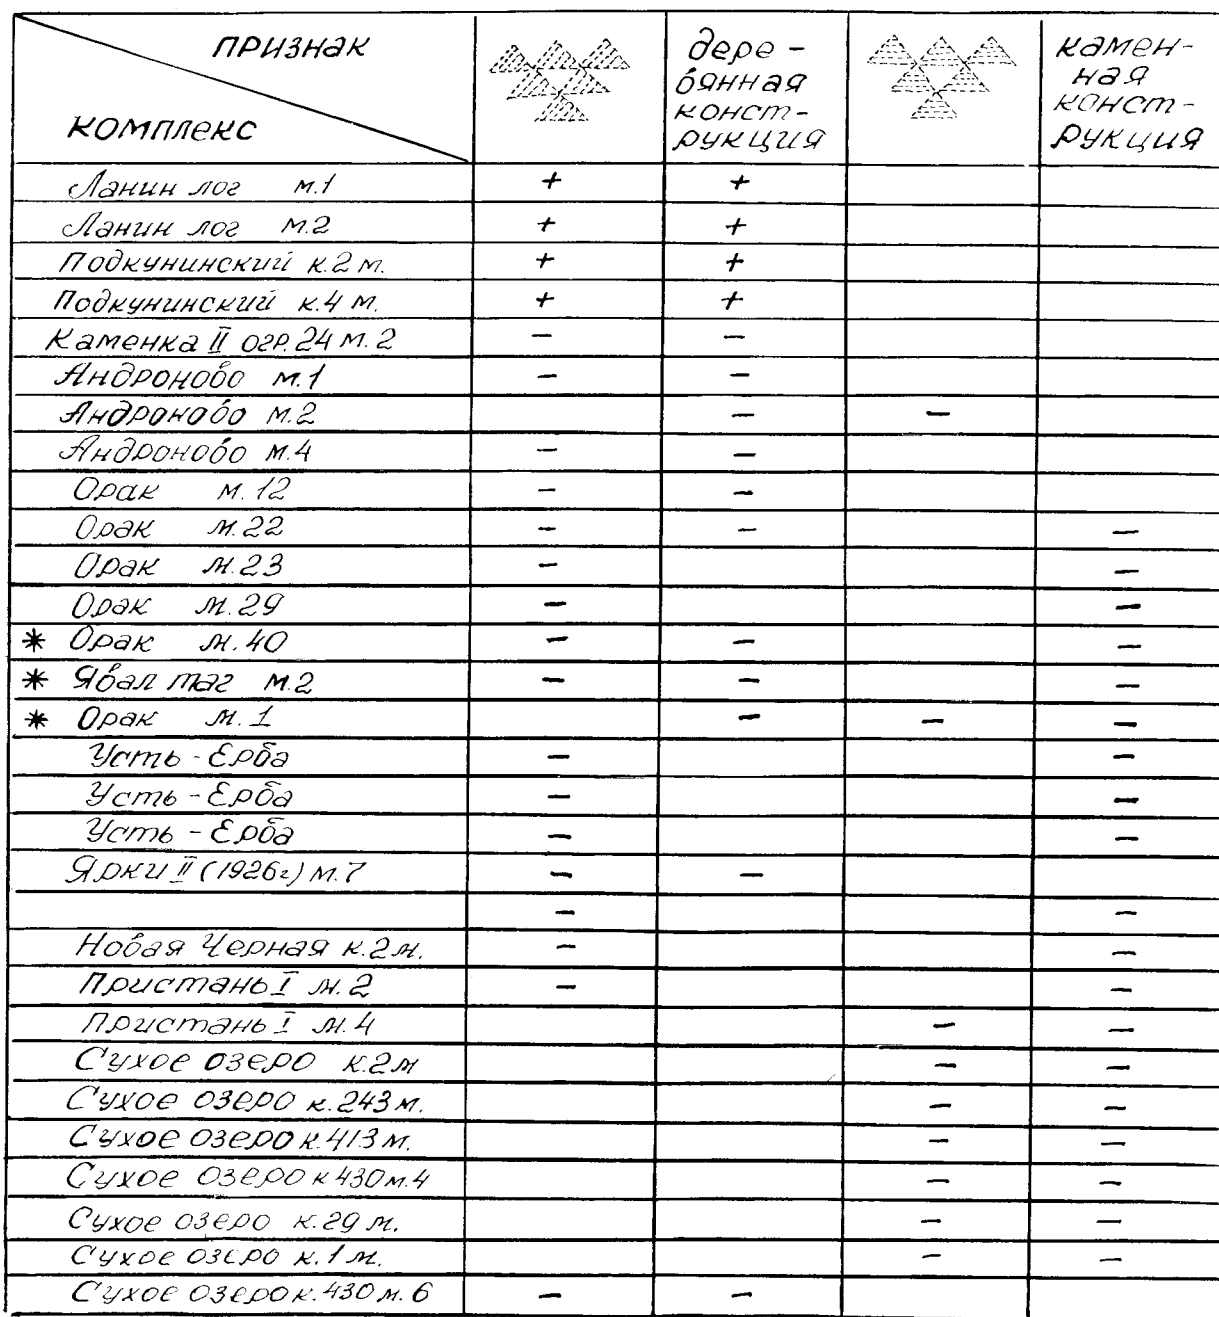 признак
комплекс
дере-
вянная
конст-
рукция
камен-
ная
конст-
рукция
Ланин лог м.1 + +
Ланин лог м.2 + +
Подкунинский к.2 м. + +
Подкунинский к.4 м. + +
Каменка II огр.24 м.2 − −
Андроново м.1 − −
Андроново м.2 − −
Андроново м.4 − −
Орак м.12 − −
Орак м.22 − − −
Орак м.23 − −
Орак м.29 − −
* Орак м.40 − − −
* Явал таг м.2 − − −
* Орак м.1 − − −
Усть-Ерба − −
Усть-Ерба − −
Усть-Ерба − −
Ярки II (1926г) м.7 − −
− −
Новая Черная к.2 м. − −
Пристань I м.2 − −
Пристань I м.4 − −
Сухое озеро к.2 м − −
Сухое озеро к.243 м. − −
Сухое озеро к.413 м. − −
Сухое озеро к 430 м.4 − −
Сухое озеро к.29 м. − −
Сухое озеро к.1 м. − −
Сухое озеро к.430 м.6 − −